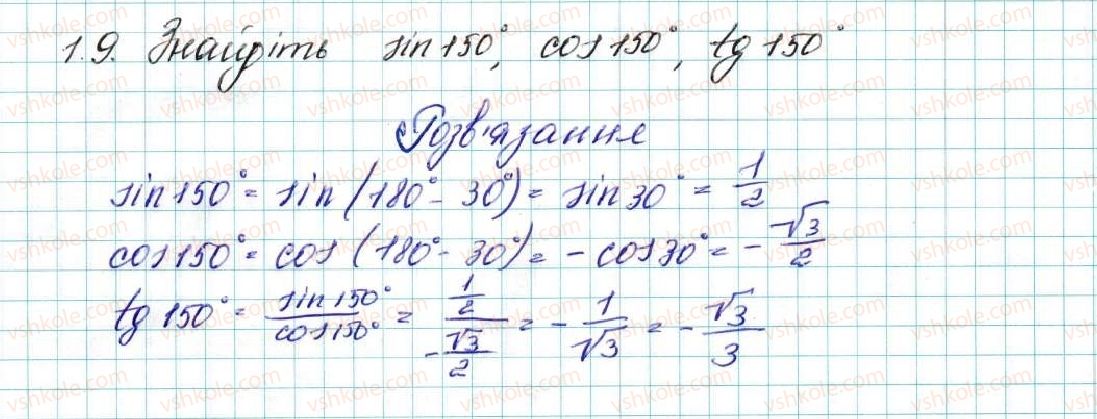 1.9. Знайдіть sin 150°, cos 150°, tg 150°
Розв'язання
sin 150° = sin (180° - 30°) = sin 30° = 1/2
cos 150° = cos (180° - 30°) = - cos 30° = - √3/2
tg 150° = sin 150°/cos 150° = (1/2)/(-√3/2) = - 1/√3 = - √3/3
vshkole.com